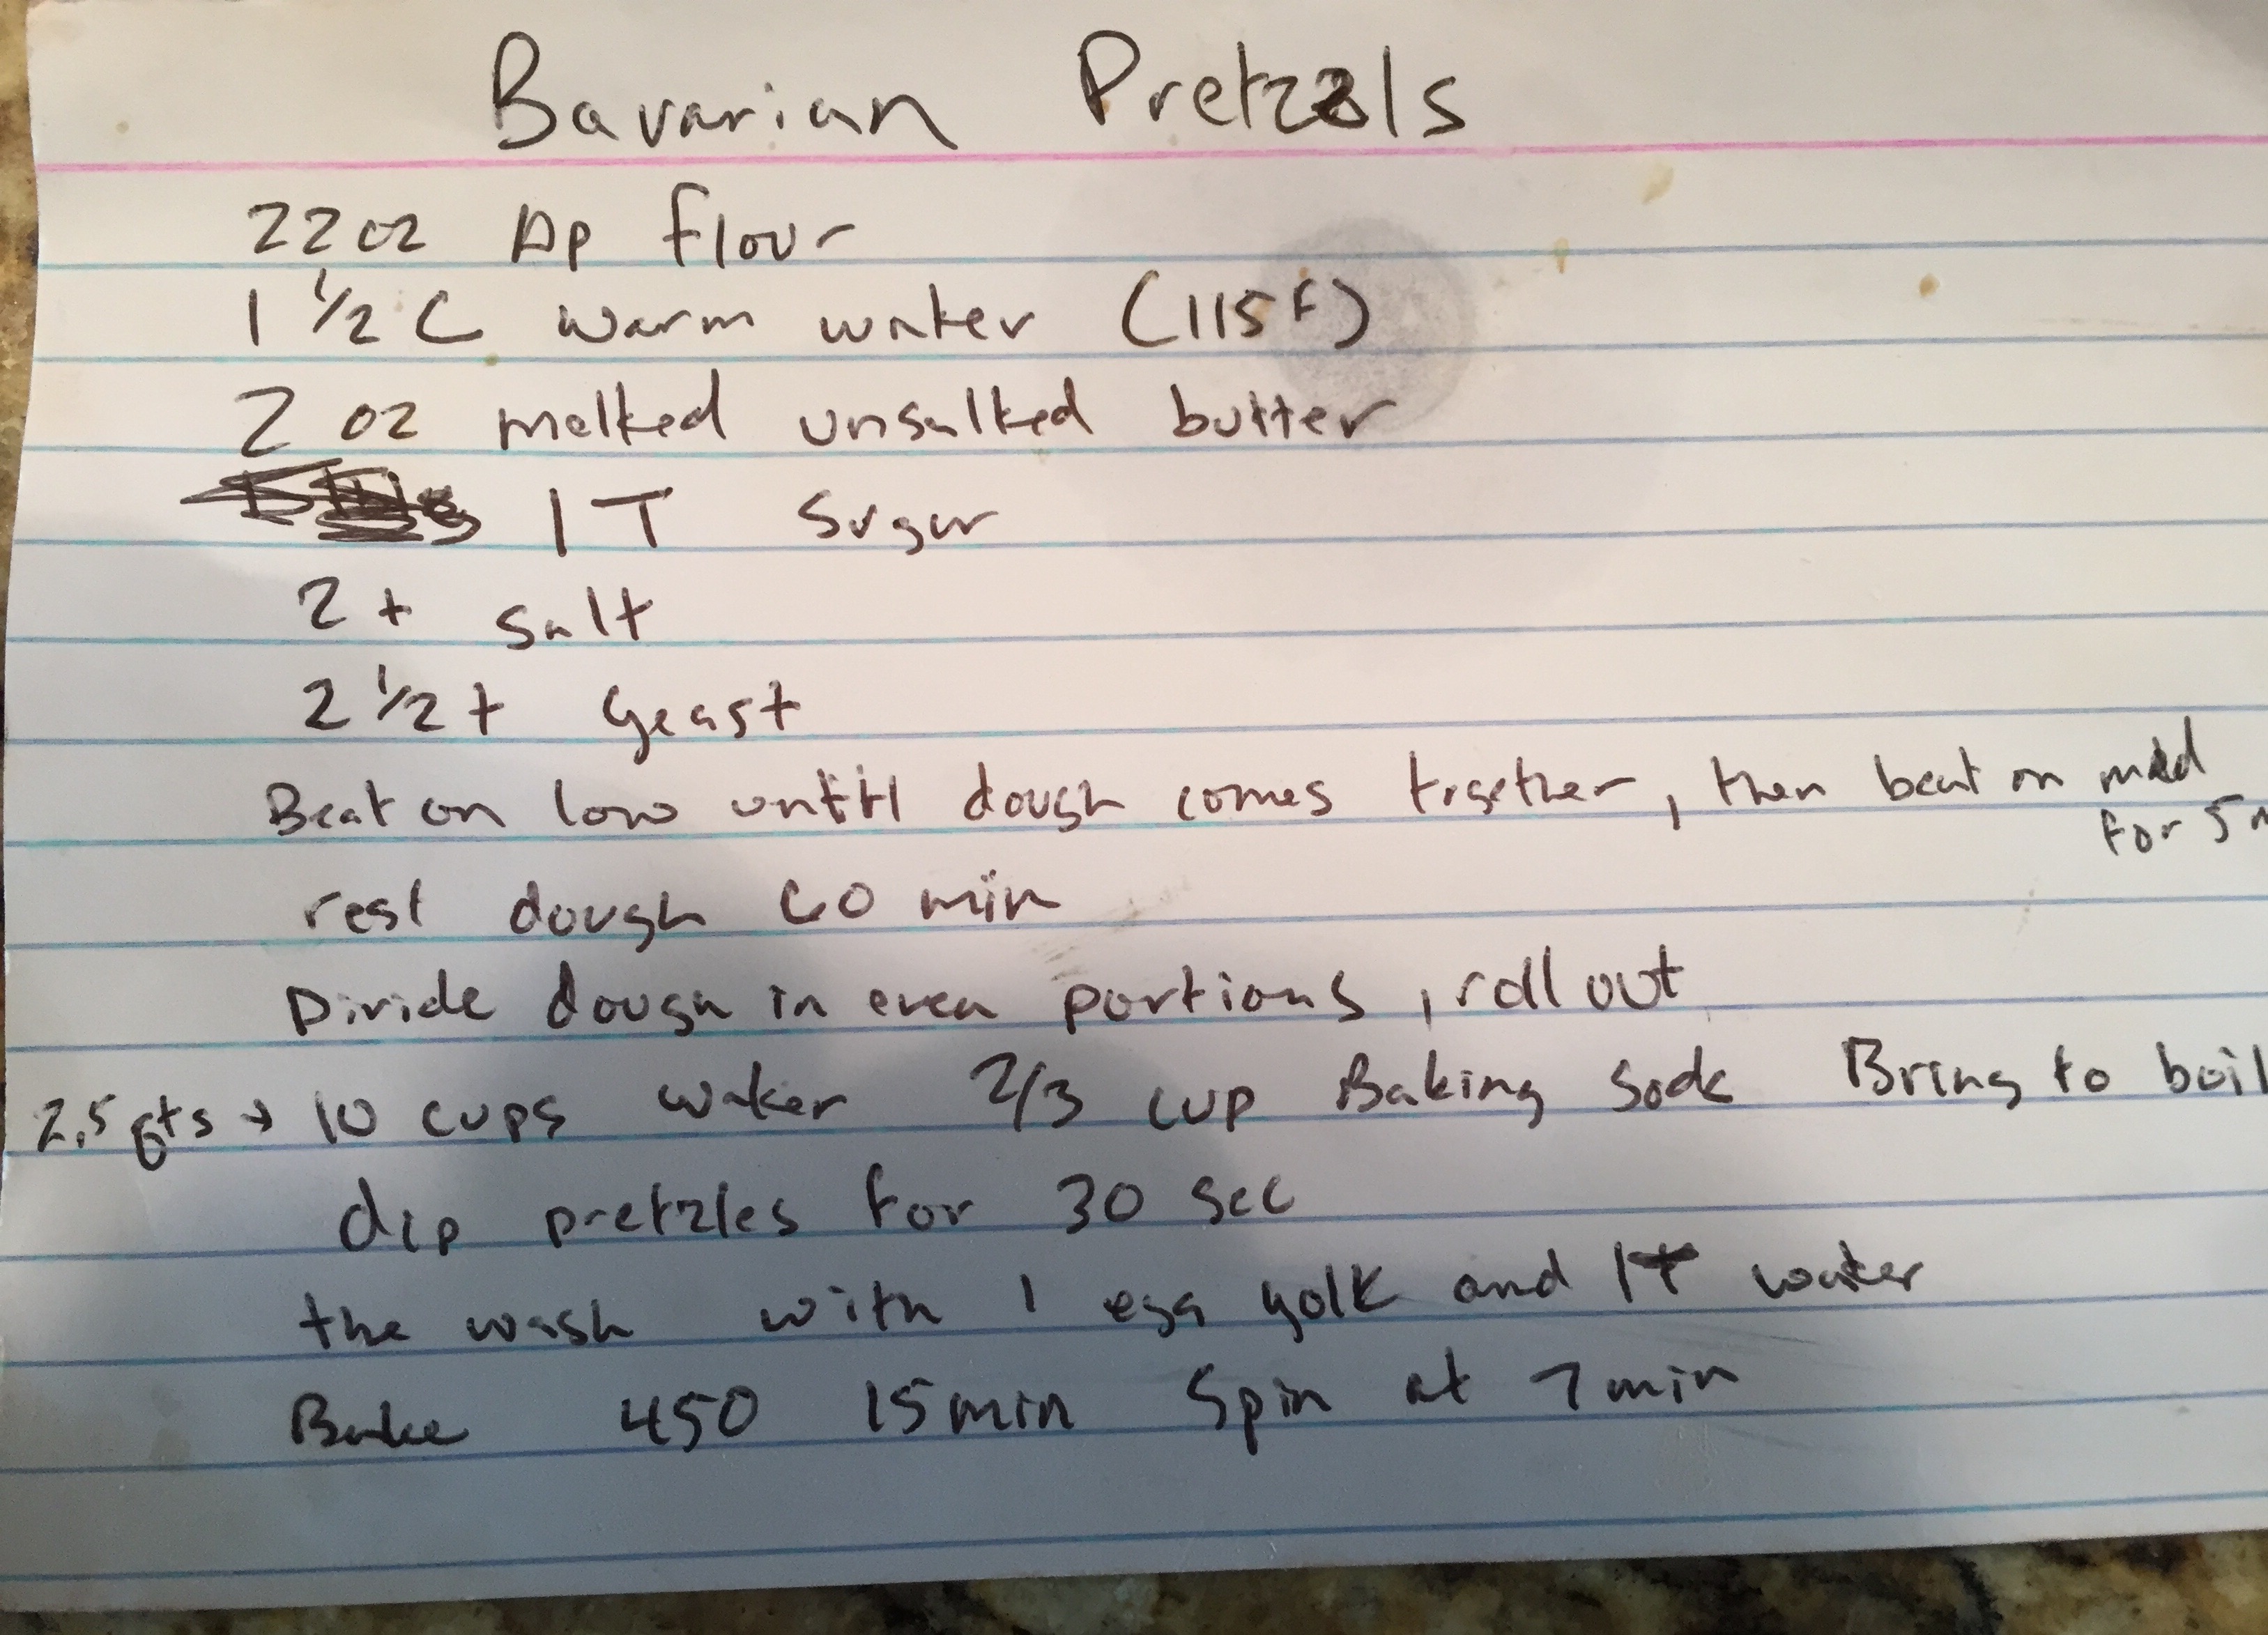 Bavarian Pretzels
22 oz AP flour
1 1/2 C warm water (115F)
2 oz melted unsalted butter
1 T Sugar
2 t salt
2 1/2 t yeast
Beat on low until dough comes together, then beat on med
for 5
rest dough 60 min
Divide dough in even portions, roll out
2.5 qts → 10 cups water 2/3 cup Baking Soda Bring to boil
dip pretzles for 30 sec
the wash with 1 egg yolk and 1T water
Bake 450 15 min Spin at 7 min